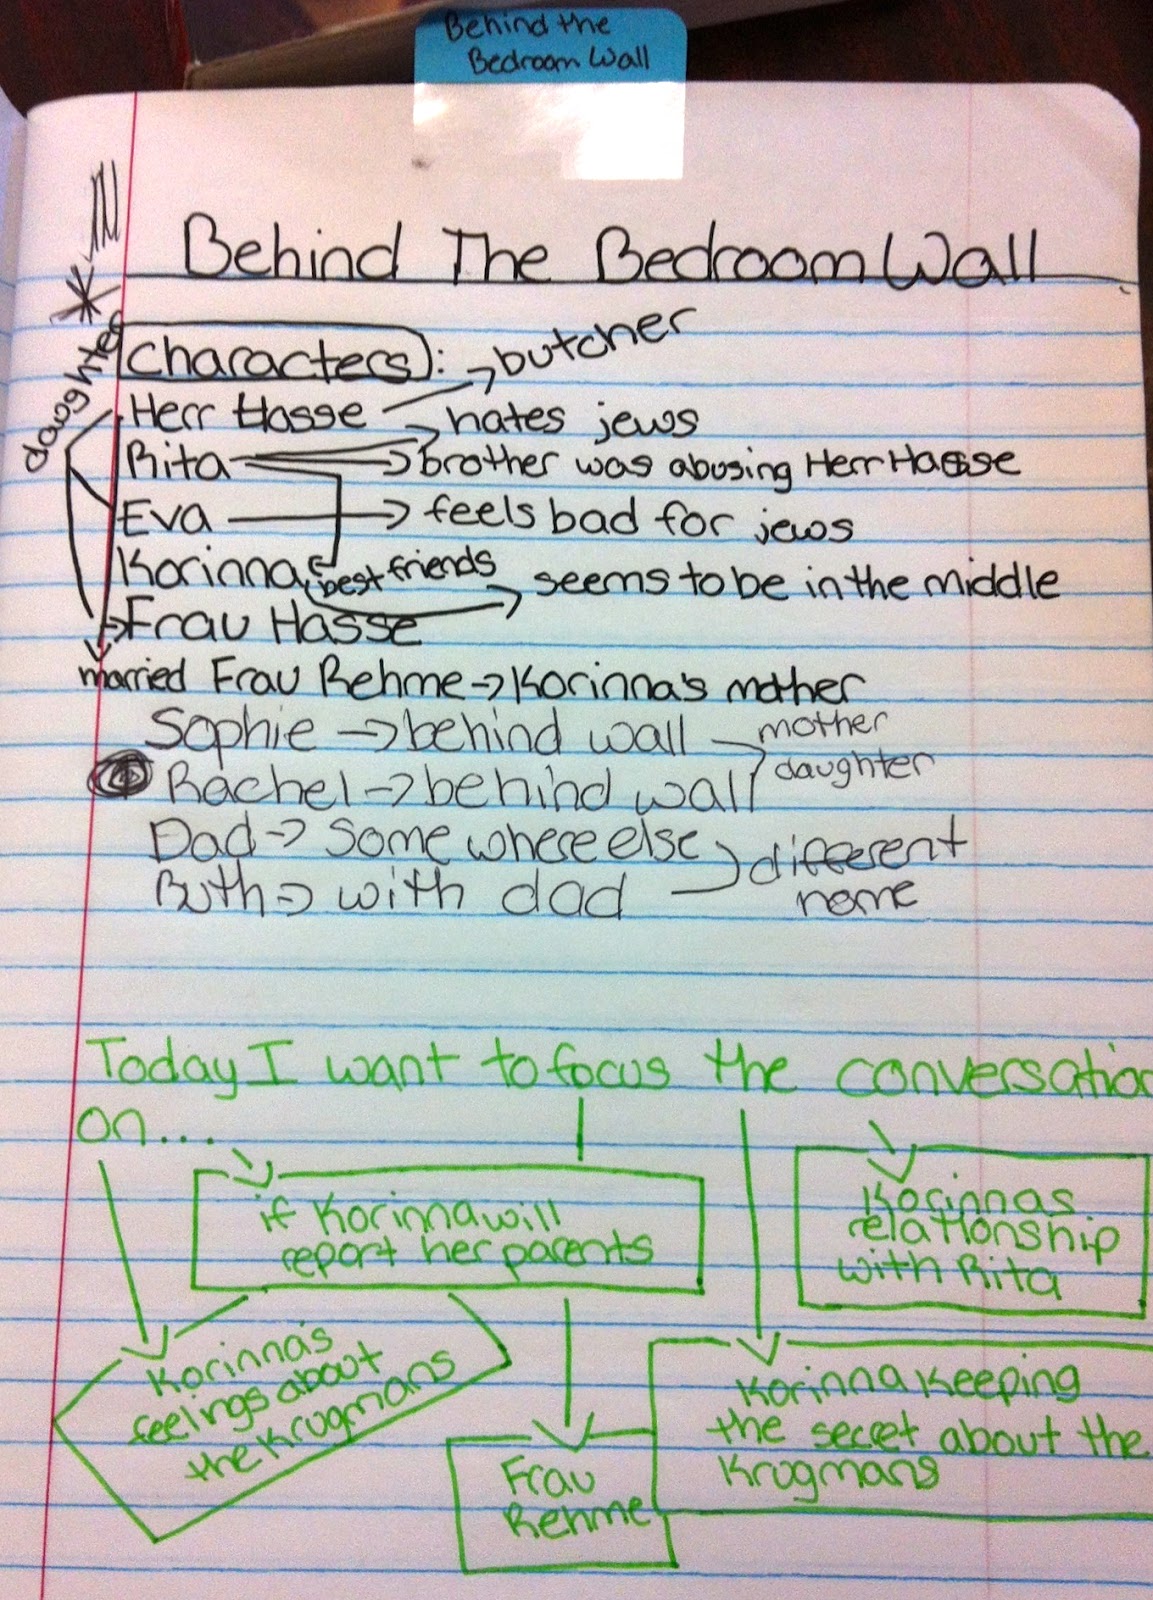 Behind the
Bedroom Wall
Behind The Bedroom Wall
Characters: → butcher
daughter
Herr Hasse → hates jews
Rita → brother was abusing Herr Hasse
Eva → feels bad for jews
Korinna best friends → seems to be in the middle
→ Frau Hasse
married Frau Rehme → Korinna's mother
Sophie → behind wall mother
Rachel → behind wall daughter
Dad → somewhere else different
Ruth → with dad name
Today I want to focus the conversation
on...
if Korinna will
report her parents
Korinnas
relationship
with Rita
Korinna's
feelings about
the Krugmans
Frau
Rehme
Korinna keeping
the secret about the
Krugmans